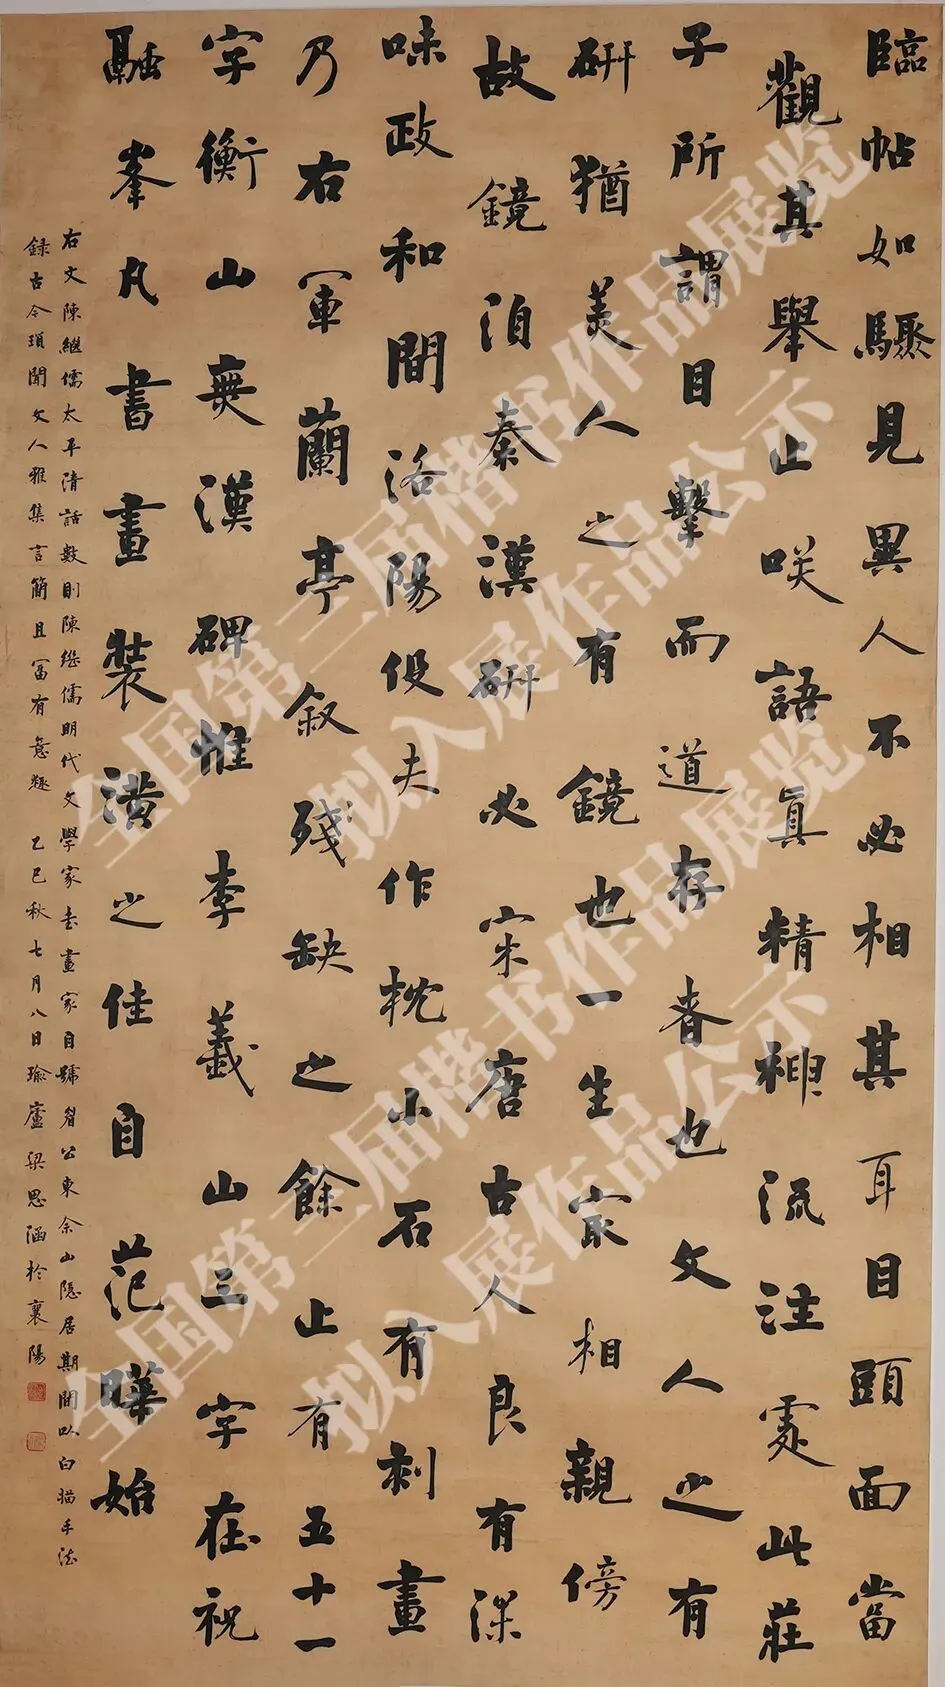 臨帖如驟見異人不必相其耳目頭面當
觀其舉止咲語真精神流注處此莊
子所謂目擊而道存者也文人之有
研猶美人之有鏡也一生宐相親傍
故鏡泊秦漢研必宋唐古人良有深
味政和間洛陽役夫作枕小石有刹畫
乃右軍蘭亭叙殘缺之餘止有五十一
字衡山無漢碑惟李義山三字在祝
融峯凡書畫裝潢之佳自范曄始
右文陳繼儒太平清話數則陳繼儒明代文學家書畫家自號眉公東余山隱居期間以白描手法
録古今瑣聞文人雅集言簡且富有意趣 乙巳秋七月八日瑜廬梁思涵於襄陽
全国第三届楷书作品展览
拟入展作品公示
全国第三届楷书作品展览
拟入展作品公示